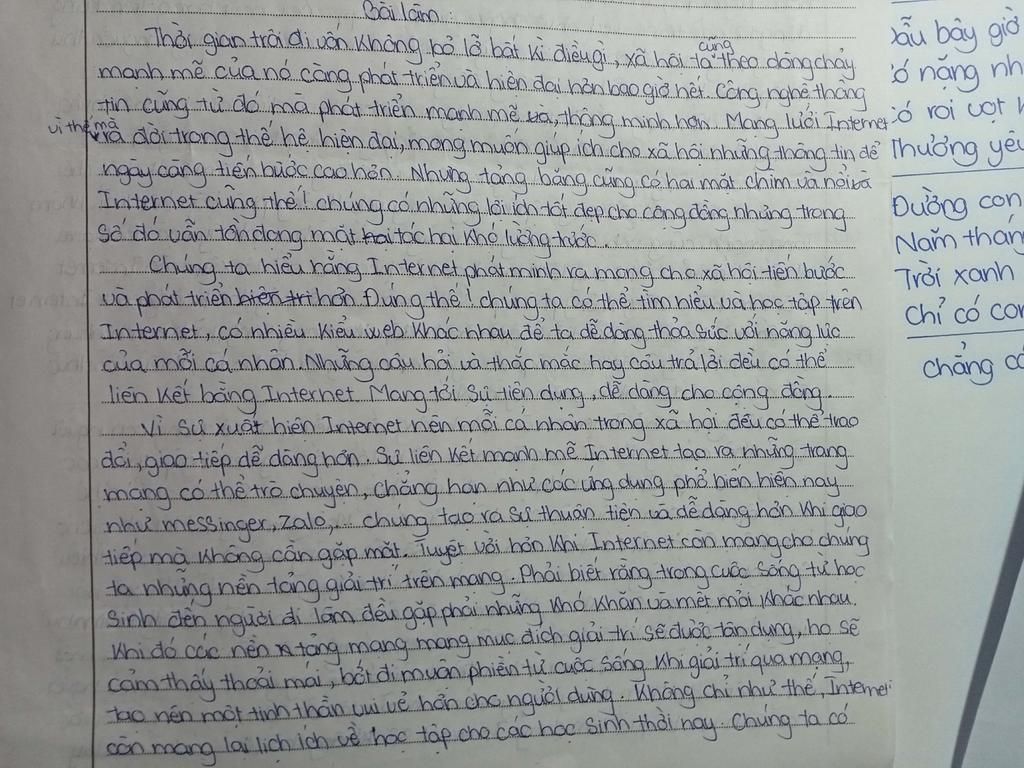 Bài làm:
Thời gian trôi đi vốn không bỏ lỡ bất kì điều gì, xã hội ta cũng theo dòng chảy
mạnh mẽ của nó càng phát triển và hiện đại hơn bao giờ hết. Công nghệ thông
tin cũng từ đó mà phát triển mạnh mẽ và, thông minh hơn. Mạng lưới Internet
vì thế mà ra đời trong thế hệ hiện đại, mong muốn giúp ích cho xã hội những thông tin để
ngày càng tiến bước cao hơn. Nhưng tảng băng cũng có hai mặt chìm và nổi và
Internet cũng thế! chúng có những lợi ích tốt đẹp cho cộng đồng nhưng trong
số đó vẫn tồn đọng mặt hại tác hại khó lường trước.
Chúng ta hiểu rằng Internet phát minh ra mong cho xã hội tiến bước
và phát triển hiện tri hơn. Đúng thế! chúng ta có thể tìm hiểu và học tập trên
Internet, có nhiều kiểu web khác nhau để ta dễ dàng thỏa sức với năng lực
của mỗi cá nhân. Những câu hỏi và thắc mắc hay câu trả lời đều có thể
liên kết bằng Internet. Mang tới sự tiện dụng, dễ dàng cho cộng đồng.
Vì sự xuất hiện Internet nên mỗi cá nhân trong xã hội đều có thể trao
đổi, giao tiếp dễ dàng hơn. Sự liên kết mạnh mẽ Internet tạo ra những trang
mạng có thể trò chuyện, chẳng hạn như các ứng dụng phổ biến hiện nay
như messinger, Zalo,... chúng tạo ra sự thuận tiện và dễ dàng hơn khi giao
tiếp mà không cần gặp mặt. Tuyệt vời hơn khi Internet còn mang cho chúng
ta những nền tảng giải trí trên mạng. Phải biết rằng trong cuộc sống từ học
sinh đến người đi làm đều gặp phải những khó khăn và mệt mỏi khác nhau.
Khi đó các nền tảng mạng mang mục đích giải trí sẽ được tận dụng, họ sẽ
cảm thấy thoải mái, bớt đi muộn phiền từ cuộc sống. Khi giải trí qua mạng,
tạo nên một tinh thần vui vẻ hơn cho người dùng. Không chỉ như thế, Internet
còn mang lại lịch ích về học tập cho các học sinh thời nay. Chúng ta có
bây giờ
nặng
roi vọt
Thưởng
Đường con
Năm
Trời xanh
Chỉ có
chẳng